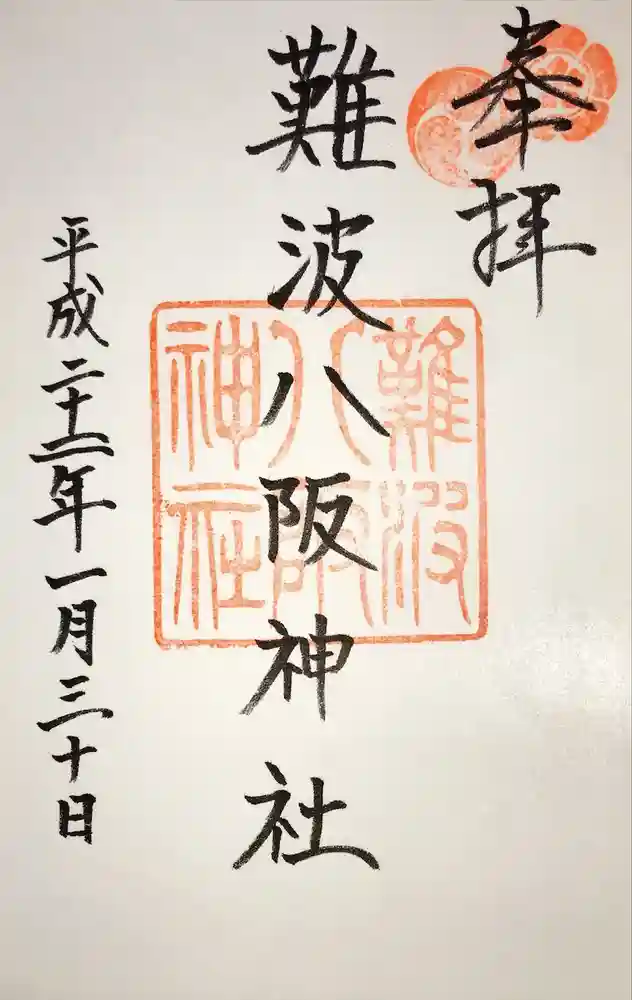 奉拝
難波八阪神社
難波
八阪
神社
平成二十二年一月三十日